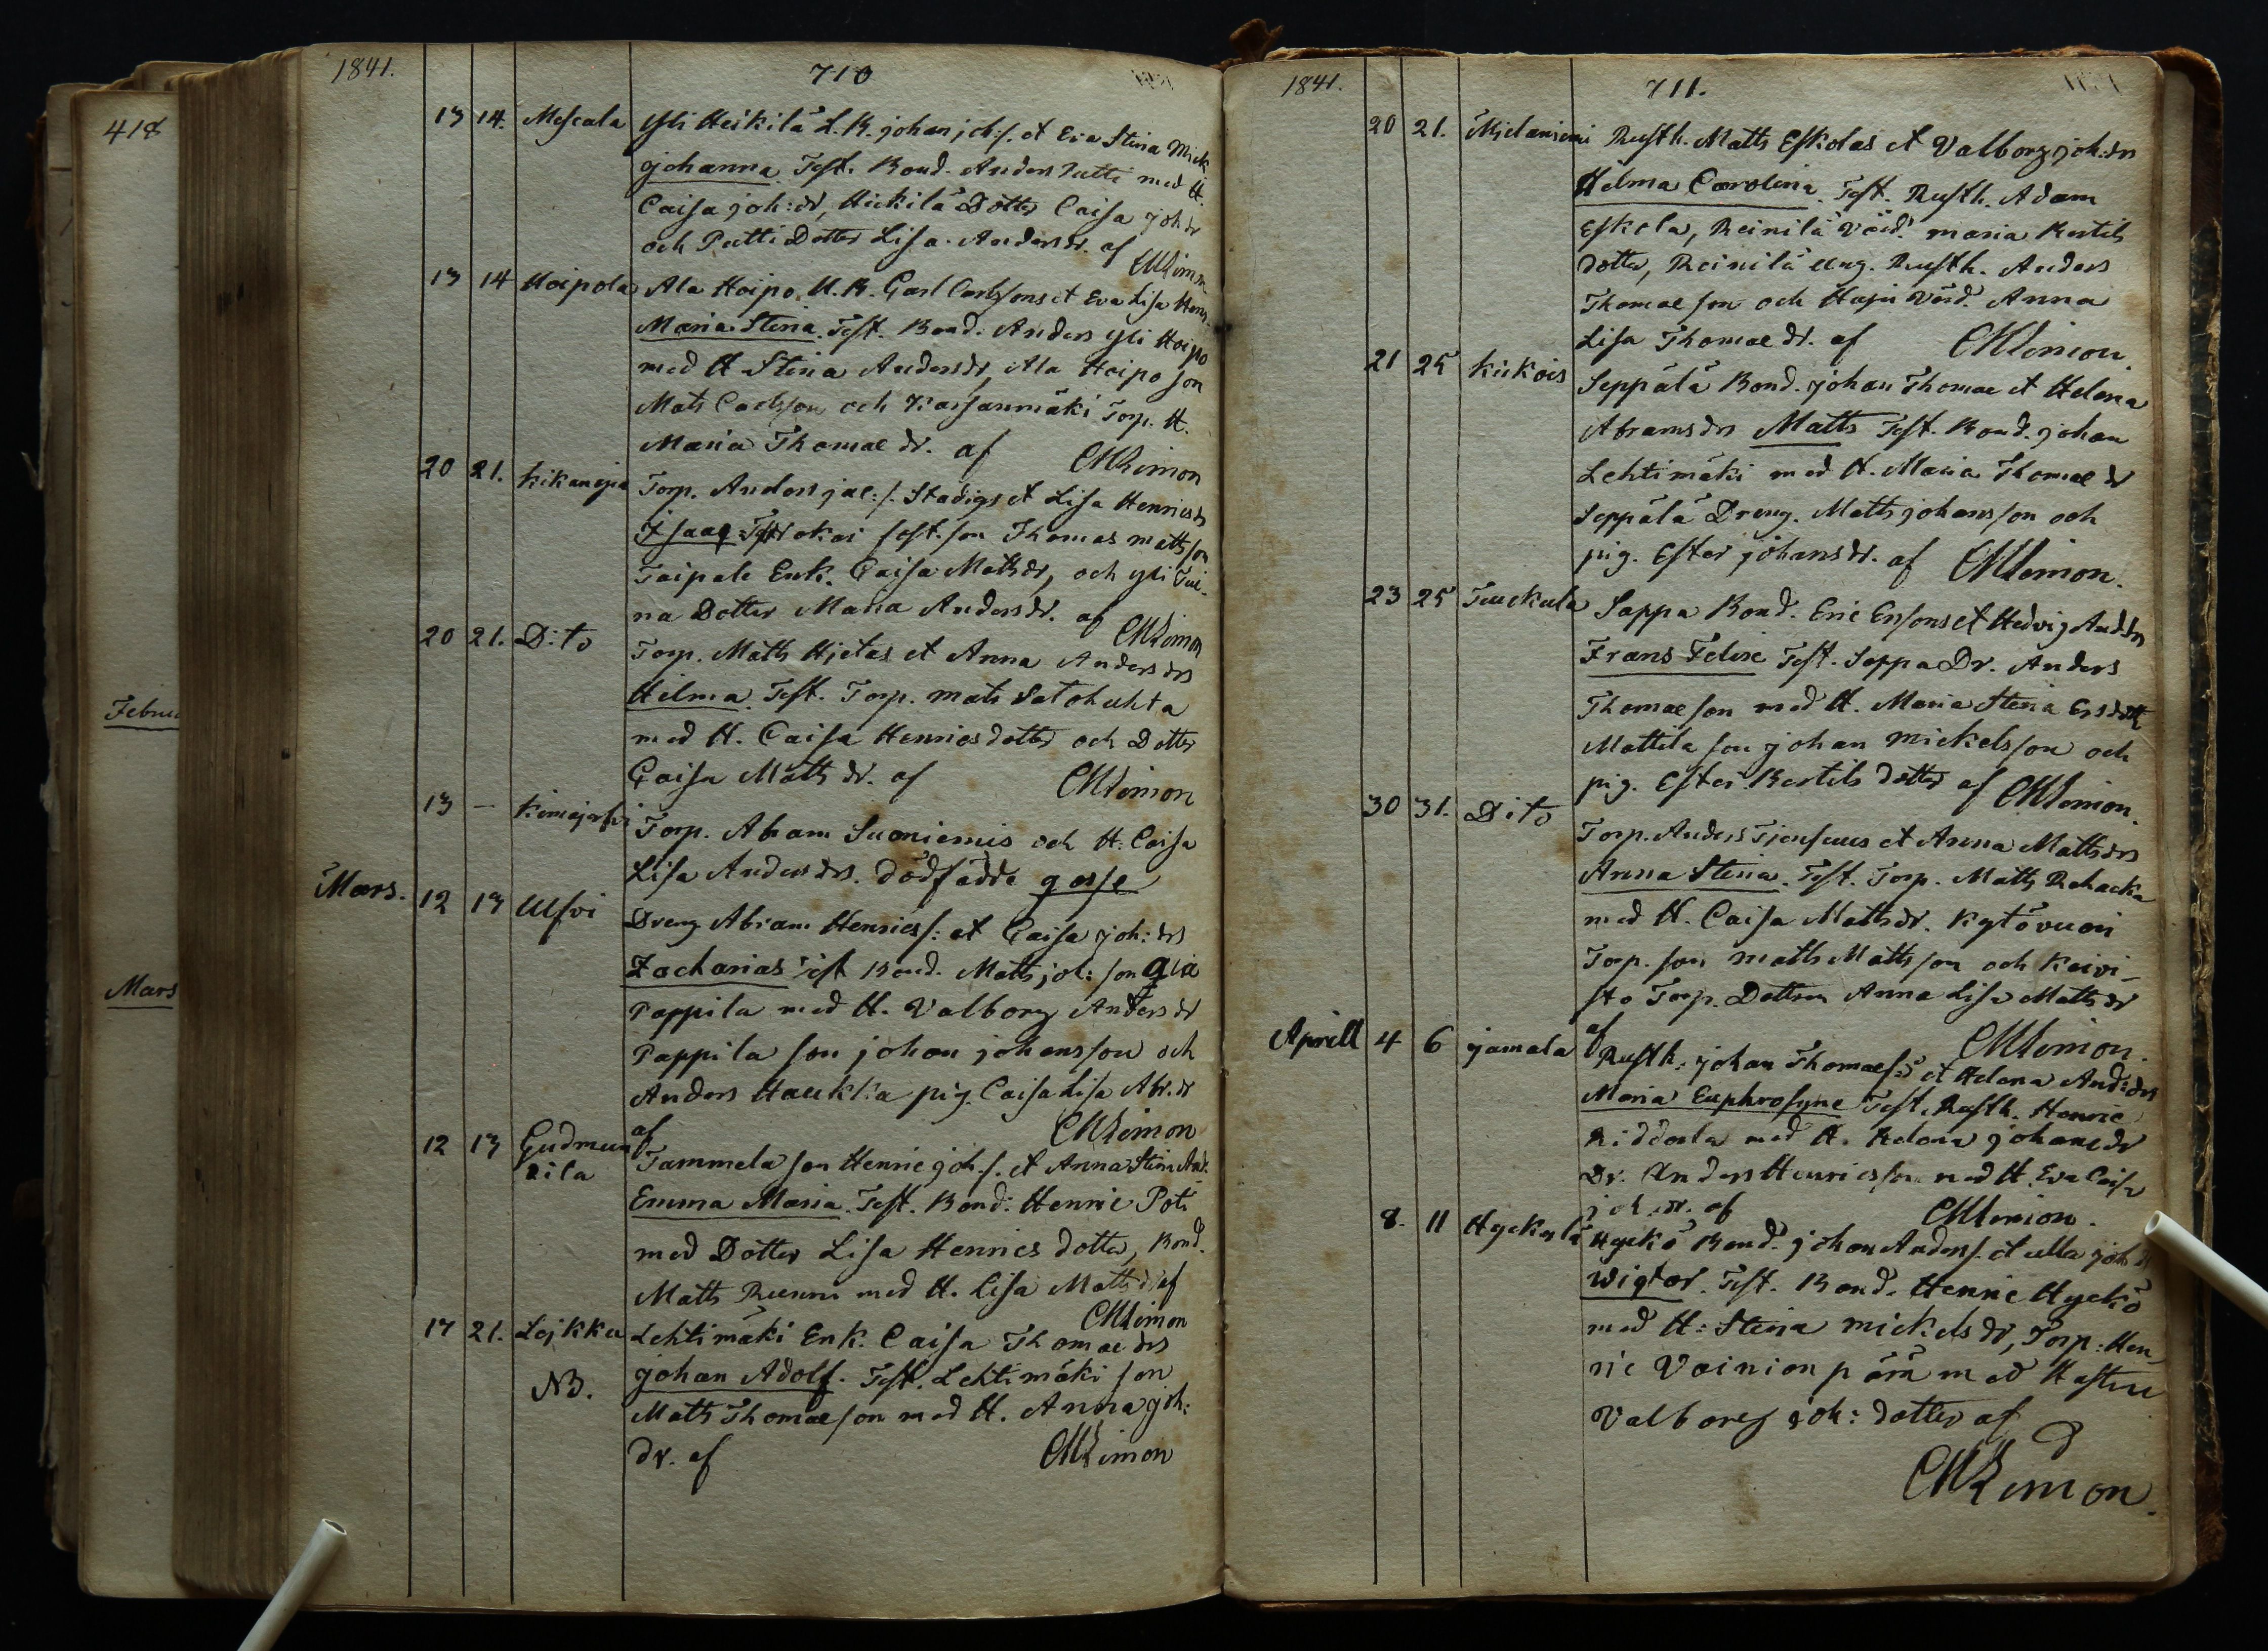 418
Februa
Mars
1841.
710
13 14. Mescala Yli Heikilä L. B. johan joh:s. et Eva Stina Mick
johanna. Test. Bond. Anders Putti med H.
Caisa joh:dr, Heikilä Dotter Caisa joh dr
och Putti Dotter Lisa Anders dr. af CMLimon
13 14 Hoipola Ala Hoipo L. B. Carl Carlssons et Eva Lisa Henr.
Maria Stina. Test. Bond. Anders Yli Hoipo
med H Stina Anders dr, Ala Hoipo son
Mats Carlsson och Torp. H.
Maria Thomae dr. af CMLimon
20 21. Kikanoja Torp. Anders jac:s. Stadigs et Lisa Henricsdr
Isaac Test. son Thomas mattsson
Taipale Enk. Caisa Matts dr, och Yli Tui-
na Dotter Maria Anders dr. af CMLimon
20 21. Dito Torp. Matts Hjetas et Anna Anders drs
Hilma. Test. Torp. mats Satohuhta
med H. Caisa Henricsdotter och Dotter
Caisa Matts dr. af CMLimon
13 — Kimajerfvi Torp. Abram Suoniemis och H. Caisa
Lisa Anders drs. dödfödde gosse
Mars. 12 13 Ulfvi Dreng Abram Henrics: et Caisa joh: drs
Zacharias Test Bond. Matts joh: son Ala
Pappila med H. Valborg Anders dr
Pappila son johan johansson och
Anders Haukka pig. Caisa Lisa Abr. dr
af CMLimon
12 13 Gudmun Tammela son Henric joh.s. et Anna Stina And.
dila Emma Maria. Test. Bond: Henric Poti
med Dotter Lisa Henrics dotter, Bond.
Matts Ruenni med H. Lisa Matts dr af
CMLimon
17 21. Lejkku Lehtimäki Enk. Caisa Thomae drs
NB. johan Adolf. Test. Lehtimäki son
Matts Thomaeson med H. Anna joh:
dr. af CMLimon
1841.
711.
20 21. Mjelaniemi Rusth. Matts Eskolas et Valborg joh:drs
Helma Carolina. Test. Rusth. Adam
Eskola, Reinilä Värd. maria Bertils
dotter, Reinilä ung. Rusth. Anders
Thomae son och Värd. Anna
Lisa Thomae dr. af CMLimon
21 25 Kiikois Seppälä Bond. johan Thomae et Helena
Abramsdrs Matts Test. Bond. johan
Lehtimäki med H. Maria Thomae dr
Seppälä Dreng. Matts johansson och
pig. Ester johans dr. af CMLimon.
23 25 Teuckula Soppa Bond. Eric Ersons et Hedvig And.drs
Frans Felixe Test. Soppa Dr. Anders
Thomae son med H. Maria Stina Ers dott
Mattila son johan mickelsson och
pig. Ester Bertils dotter af CMLimon.
30 31. Dito Torp. Anders Tjensuus et Anna Matts drs
Anna Stina. Test. Torp. Matts Rehacka
med H. Caisa Matts dr. Kytövuori
Torp. son matts Mattsson och Koivi-
sto Torp. Dottren Anna Lisa Matts dr
af CMLimon.
Aprill 4 6 jamala Rusth. johan Thomaes: et Helena And: drs
Maria Euphrosyne Test. Rusth. Henric
Riddorla med H. Helena johans dr
Dr. Anders Henricsson med H. Eva Caisa
joh. dr. af CMLimon.
8. 11 Hyckylä Hyckö Bond. johan Anders. et Ulla joh dr
Wigtor. Test. Bond. Henric Hyckö
med H: Stina mickels dr, Torp: Hen-
ric Vainionpärä med Hustru
Valborg joh: dotter af
CMLimon.